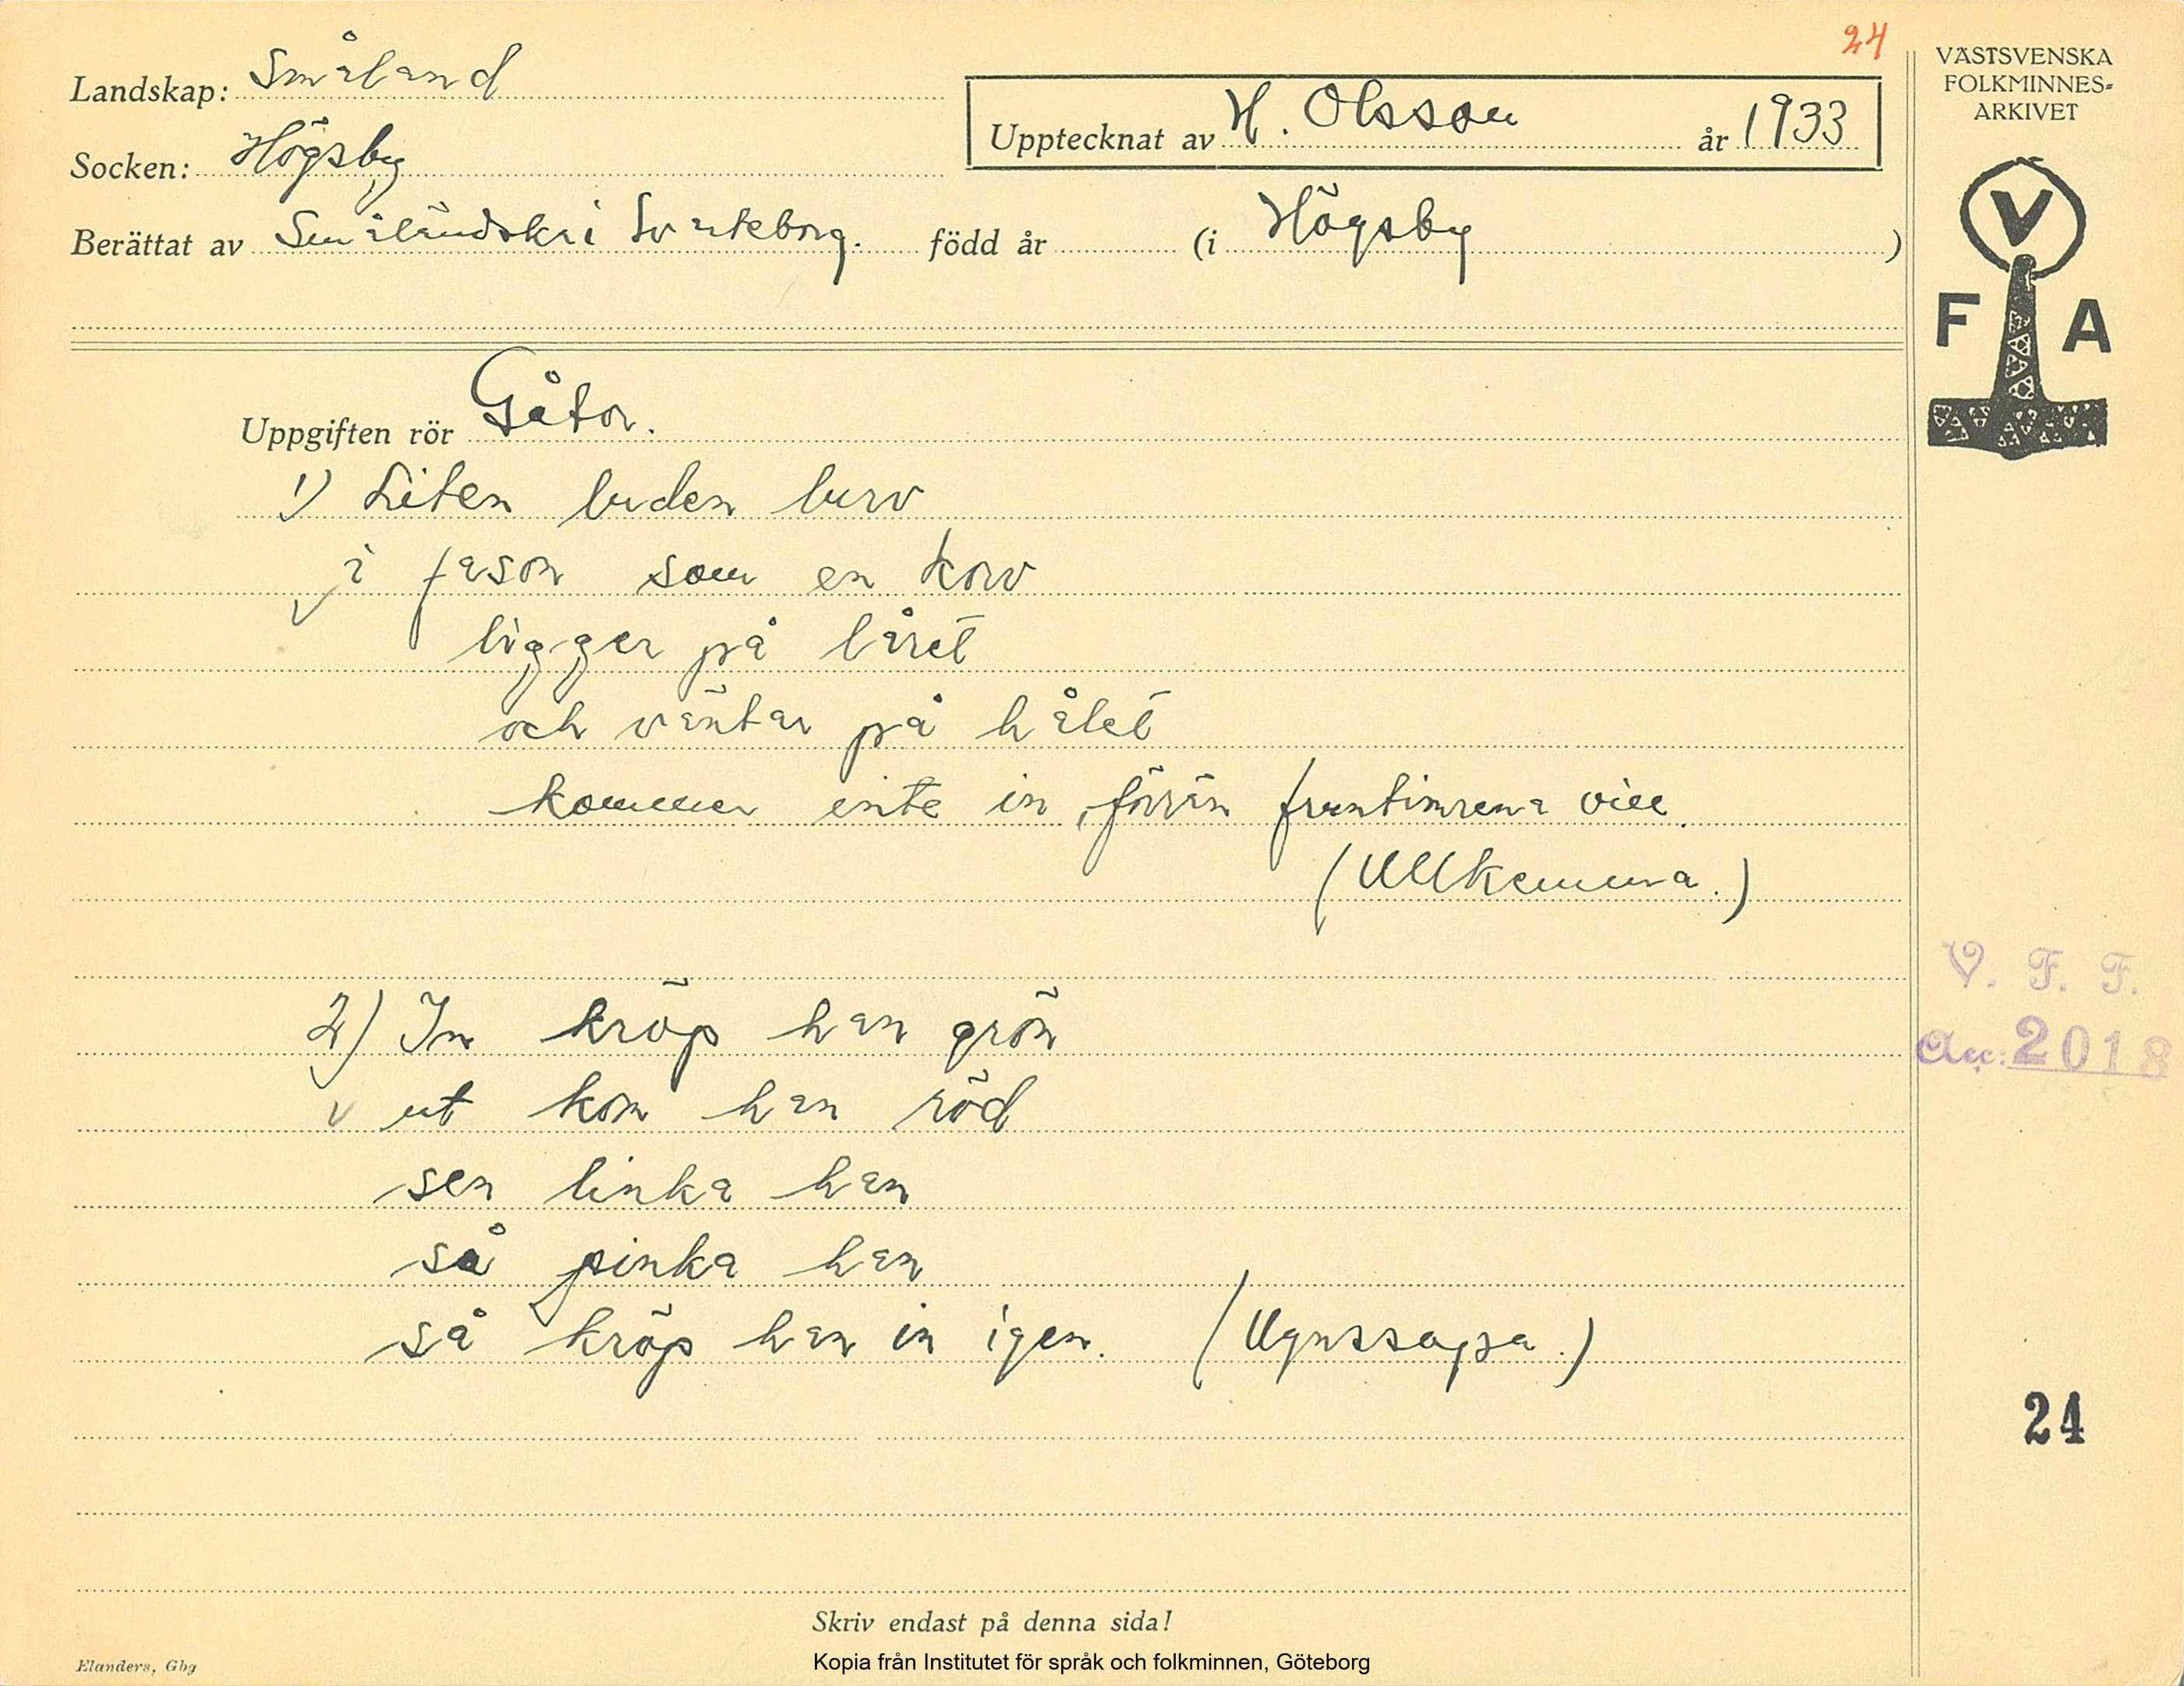 24
Landskap: Småland
Socken: Högsby
Upptecknat av H. Olsson år 1933
Berättat av Småländska i Svarteborg. född år (i Högsby)
VÄSTSVENSKA
FOLKMINNES-
ARKIVET
V
F A
Uppgiften rör Gåtor.
1) Liten luden lurv
i fason som en korv
ligger på låret
och väntar på hålet
kommer inte in, förrän fruntimrena vill.
(Ullkemma.)
2) In kröp han grön
ut kom han röd
sen linka han
så pinka han
så kröp han in igen. (Ugnssopa.)
V. F. F.
Acc: 2018
24
Skriv endast på denna sida!
Elanders, Gbg
Kopia från Institutet för språk och folkminnen, Göteborg